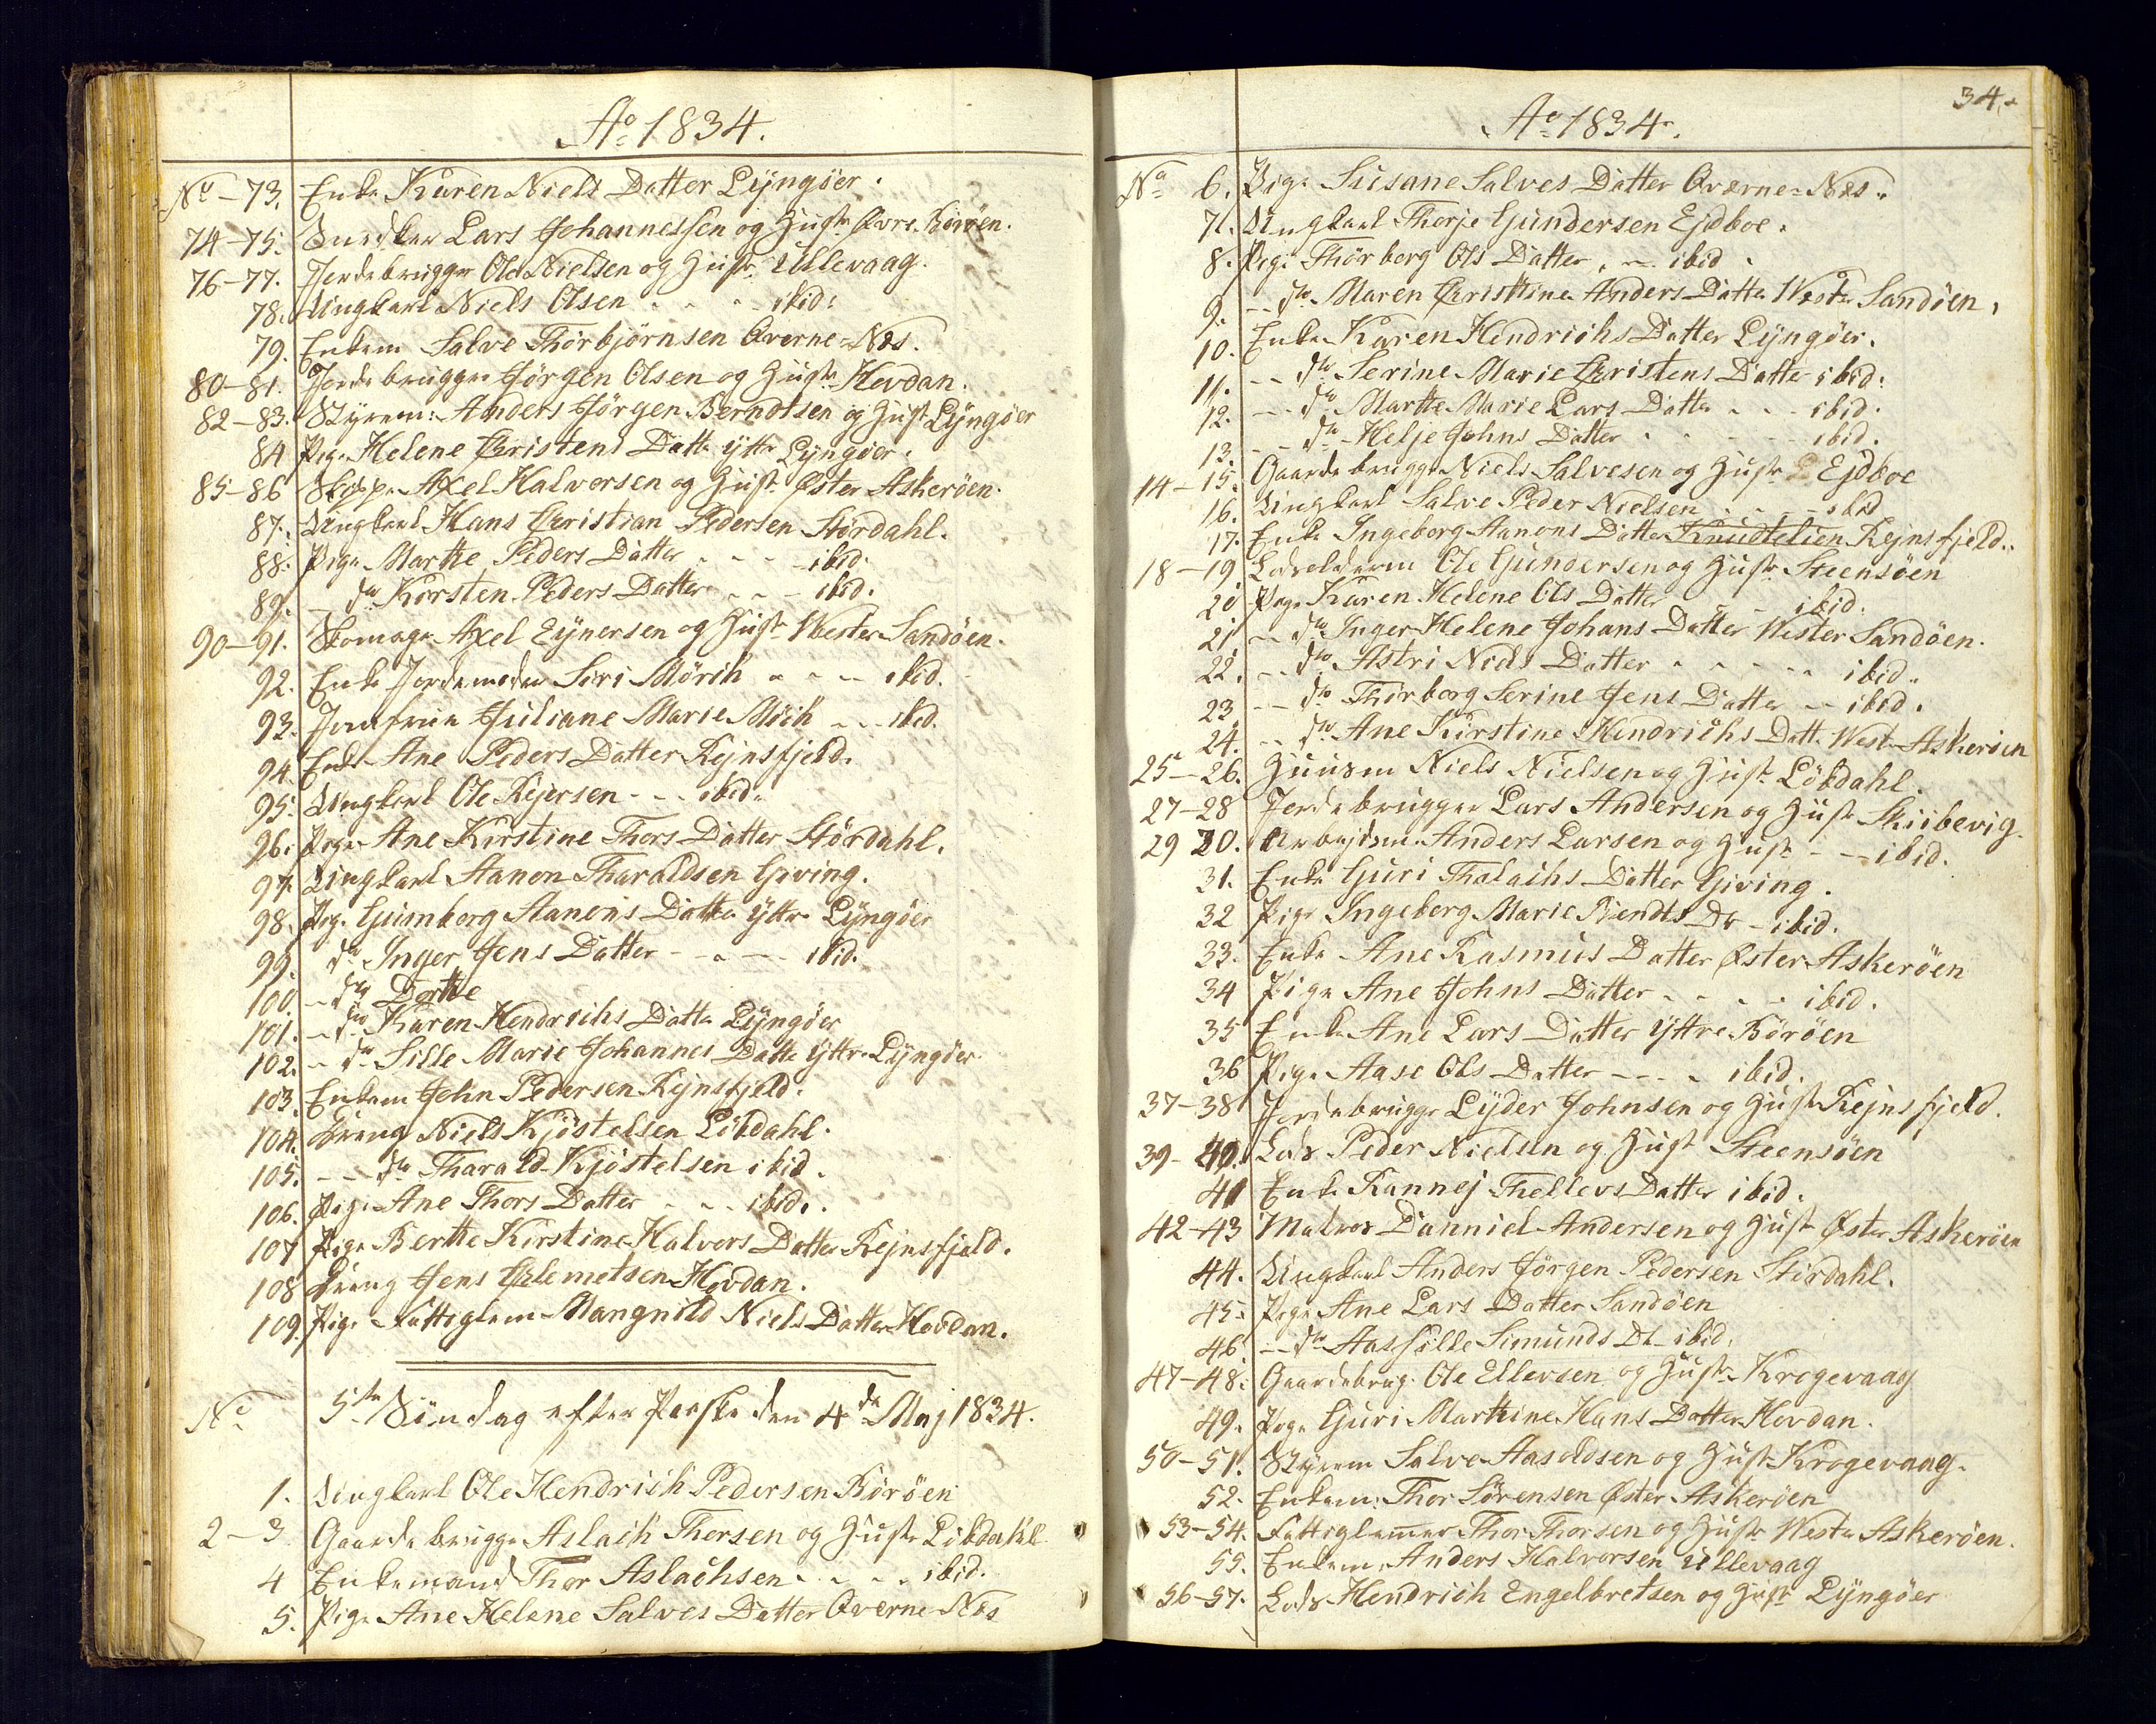 Ao 1834.
No - 73. Enke Karen Niels Datter Lyngöer.
74-75. Snedker Lars Johannessen og Hustr. Övre Böröen.
76-77. Jordebruger Ole Nielsen og Hustr. Ullevaag.
78. Ungkarl Niels Olsen - - - ibid:
79. Enkem Salve Thorbjörnsen Qverne-Næs.
80-81. Jordebruger Jörgen Olsen og Hustr. Hovdan.
82-83. Styrem: Anders Jörgen Berndtsen og Hustr Lyngöer
84 Pige Helene Christens Datter Yttre Lyngöer.
85-86 Skipp. Axel Halvorsen og Hustr. Öster Askeröen.
87. Ungkarl Hans Christian Pedersen Stördahl.
88. Pige Marthe Peders Datter - - - ibid.
89. - do Korsten Peders Datter - - - ibid.
90-91. Skomager Axel Eynersen og Hustr Wester Sandöen.
92. Enke Jordemoder Siri Mörch - - - ibid.
93. Jomfrue Juliane Marie Möch - - ibid.
94. Enke Ane Peders Datter Rejnsfjeld.
95. Ungkarl Ole Rejersen - - - ibid.
96. Pige Ane Kirstine Thors Datter Stördahl.
97. Ungkarl Aanon Tharaldsen Giving.
98. Pige Gunnborg Aanons Datter Yttre Lyngöer
99. do Inger Jens Datter - - - ibid.
100. - do Dorthe
101. - do Karen Hendrichs Datter Lyngöer
102. - do Sille Marie Johannes Datter Yttre Lyngöer
103. Enkem John Pedersen Rejnsfjeld.
104. Dreng Niels Kjöstelsen Lökdahl.
105. - - do Tharald Kjöstelsen ibid.
106. Pige Ane Thors Datter - - - ibid.
107 Pige Berthe Kirstine Halvors Datter Rejnsfjeld.
108 Dreng Jens Clemetsen Hovdan.
109. Pige Fattiglem Mangnild Niels Datter Hovdan.
No 5te Söndag efter Paaske den 4de Maj 1834.
1. Ungkarl Ole Hendrich Pedersen Böröen
2-3 Gaardebruger Aslach Thorsen og Hustr Lökdahl
4 Enkemand Thor Aslachsen - - - ibid.
5. Pige Ane Helene Salves Datter Qverne Næs
34.
Ao 1834.
No 6. Pige Susane Salves Datter Qverne-Næs.
7. Ungkarl Thorje Gundersen Ejdboe.
8. Pige Thörborg Ols Datter - - ibid.
9. - - do Maren Christine Anders Datter Wester Sandöen.
10. Enke Karen Hendrichs Datter Lyngöer.
11. - - do Serine Marie Christens Datter ibid.
12. - - do Marthe Marie Lars Datter - - - ibid.
13. - - do Helje Johns Datter - - - ibid.
14-15. Gaardebruger Niels Salvesen og Hustr Ejdboe
16. Ungkarl Salve Peder Nielsen - - - ibid
17. Enke Ingeborg Aanons Datter Knudtelien Rejnsfjeld.
18-19 Lodsolderm Ole Gundersen og Hustr. Steensöen
20 Pige Karen Helene Ols Datter - - ibid.
21. - - do Inger Helene Johans Datter Wester Sandöen.
22. - - do Astri Niels Datter - - - ibid.
23 - - do Thorborg Serine Jens Datter - - ibid.
24. - - do Ane Kirstine Hendrichs Datt. West. Askeröen
25-26. Huusm Niels Nielsen og Hustr Lökdahl.
27-28 Jordebruger Lars Andersen og Hustr Skiibevig.
29 30. Arbejdsm. Anders Larsen og Hustr - - ibid.
31. Enke Guri Thalachs Datter Giving.
32 Pige Ingeborg Marie Bendts Dr - ibid.
33. Enke Ane Rasmus Datter Öster Askeröen
34 Pige Ane Johns Datter - - - ibid.
35 Enke Ane Lars Datter Yttre Böröen
36 Pige Aase Ols Datter - - - ibid.
37-38 Jordebruger Lyder Johnsen og Hustr Rejnsfjeld.
39-40. Lods Peder Nielsen og Hustr Steensöen
41 Enke Rannej Thellevs Datter ibid.
42-43 Matros Danniel Andersen og Hustr Öster Askeröen
44. Ungkarl Anders Jörgen Pedersen Stördahl.
45. Pige Ane Lars Datter Sandöen
46 - - do Aassille Simunds Dt. ibid.
47-48. Gaardebrug. Ole Ellevsen og Hustr. Krogevaag
49. Pige Guri Marthine Hans Datter Hovdan.
50-51. Styrem Salve Aasoldsen og Hustr Krogevaag.
52. Enkem. Thor Sörensen Öster Askeröen
53-54. Fattiglemmer Thor Thorsen og Hustr Wester Askeröen.
55. Enkem. Anders Halvorsen Ullevaag
56-57. Lods Hendrich Engelbretsen og Hustr Lyngöer